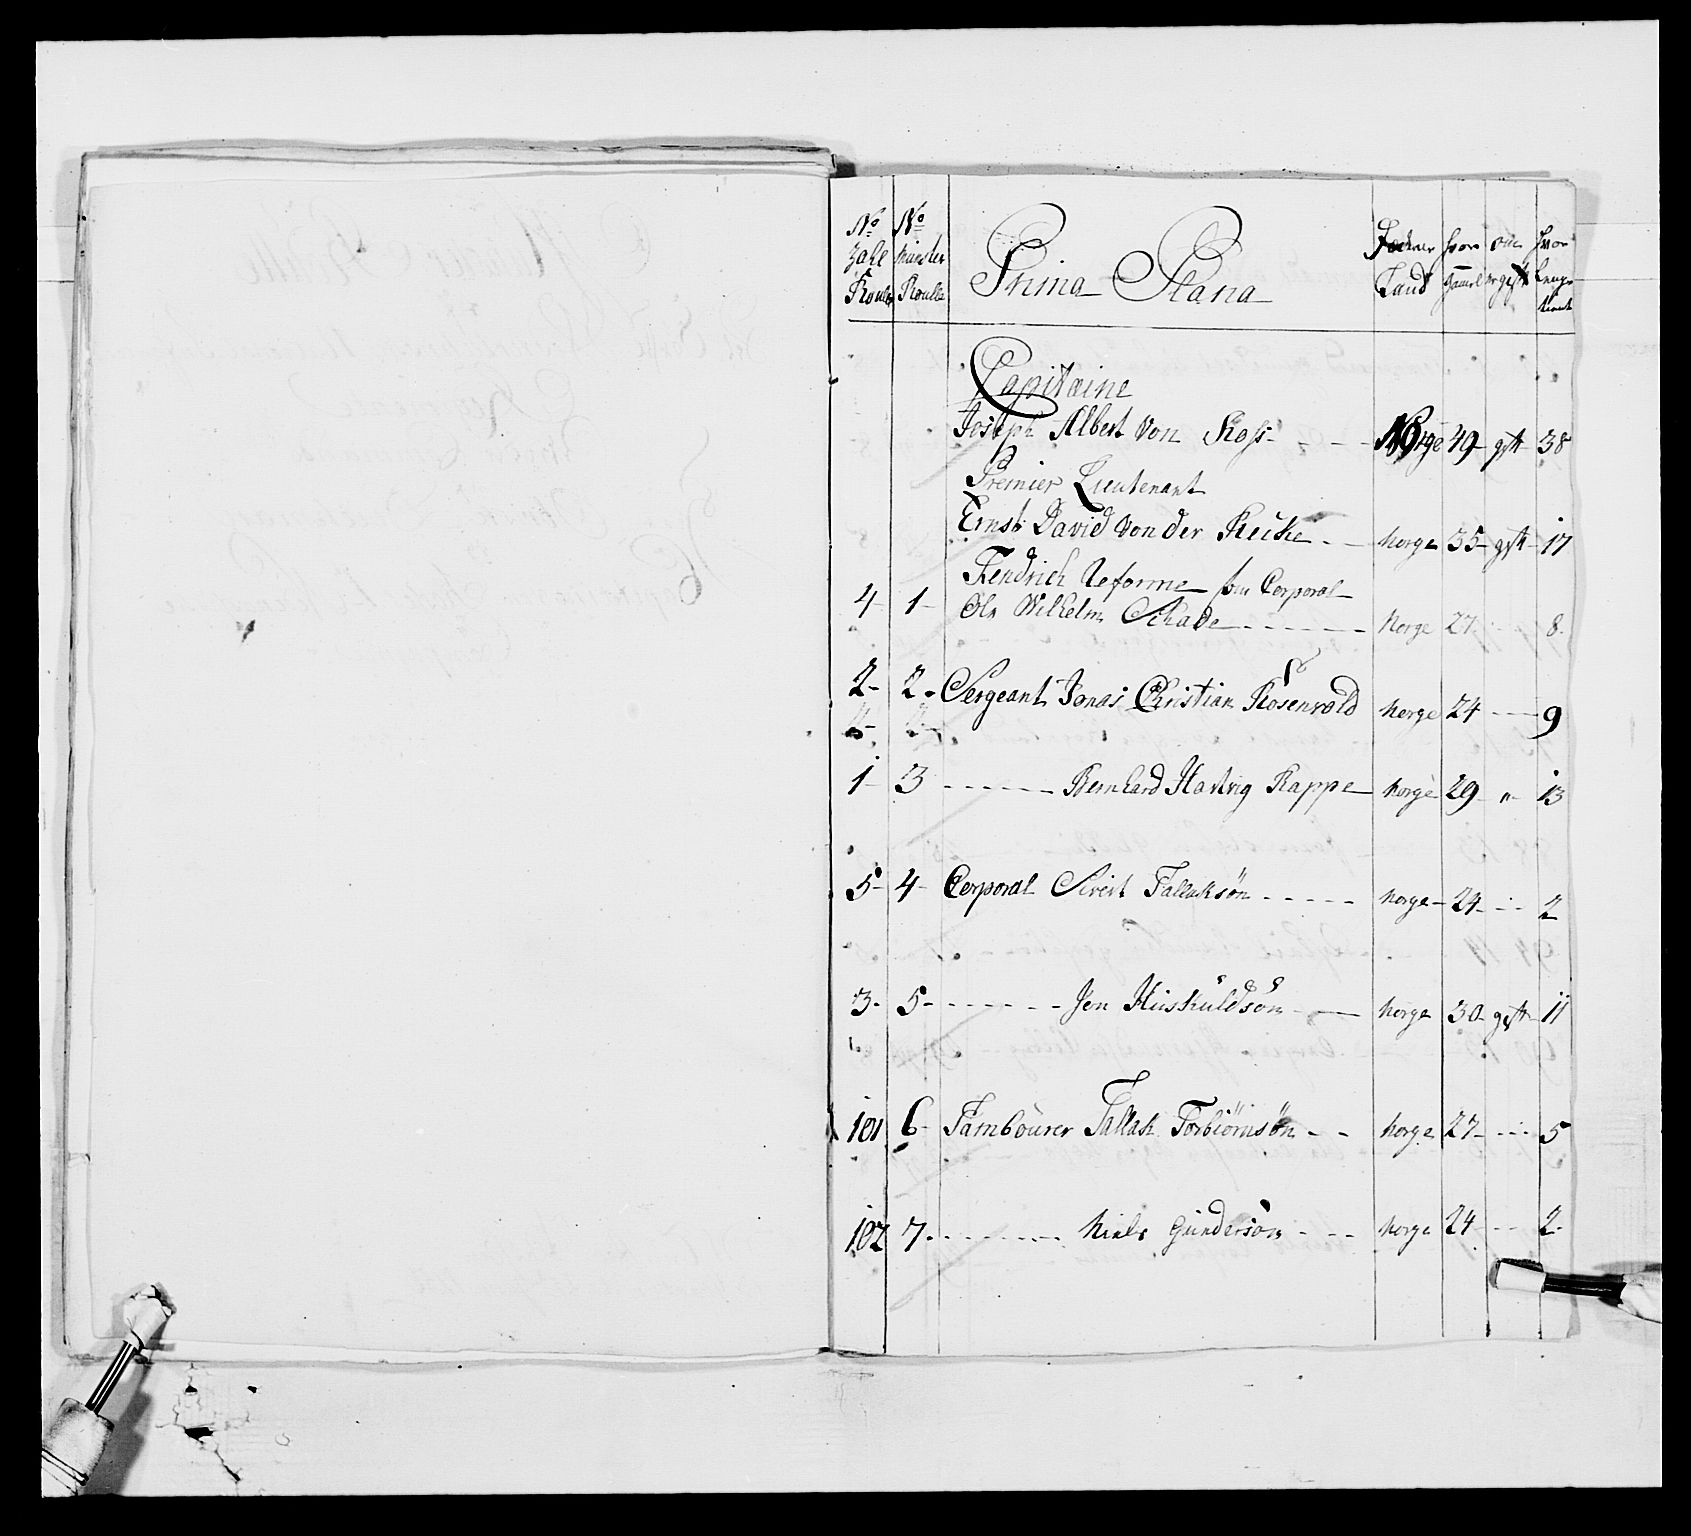 No No
Zahl Munster Prima Plana Fædrene hvor om hvor
Roulle Roulle Land gammel er gift Lenge
tient
Capitaine
Joseph Albert von Koss Norge 49 gift 38
Premier Lieutenant
Ernst David von der Recke Norge 35 gift 17
Fendrich Reforme som Corporal
4 1 Ole Wilhelm Schade Norge 27 8
2 2 Sergeant Jonas Christian Rosenvold Norge 24 9
1 3 Bernhard Hartvig Rappe Norge 29 13
5 4 Corporal Sivert Tallaksön Norge 24 2
3 5 Jon Huskuldsön Norge 30 gift 11
101 6 Tambourer Tallak Torbiörnsön Norge 27 5
102 7 Niels Gundersön Norge 24 2